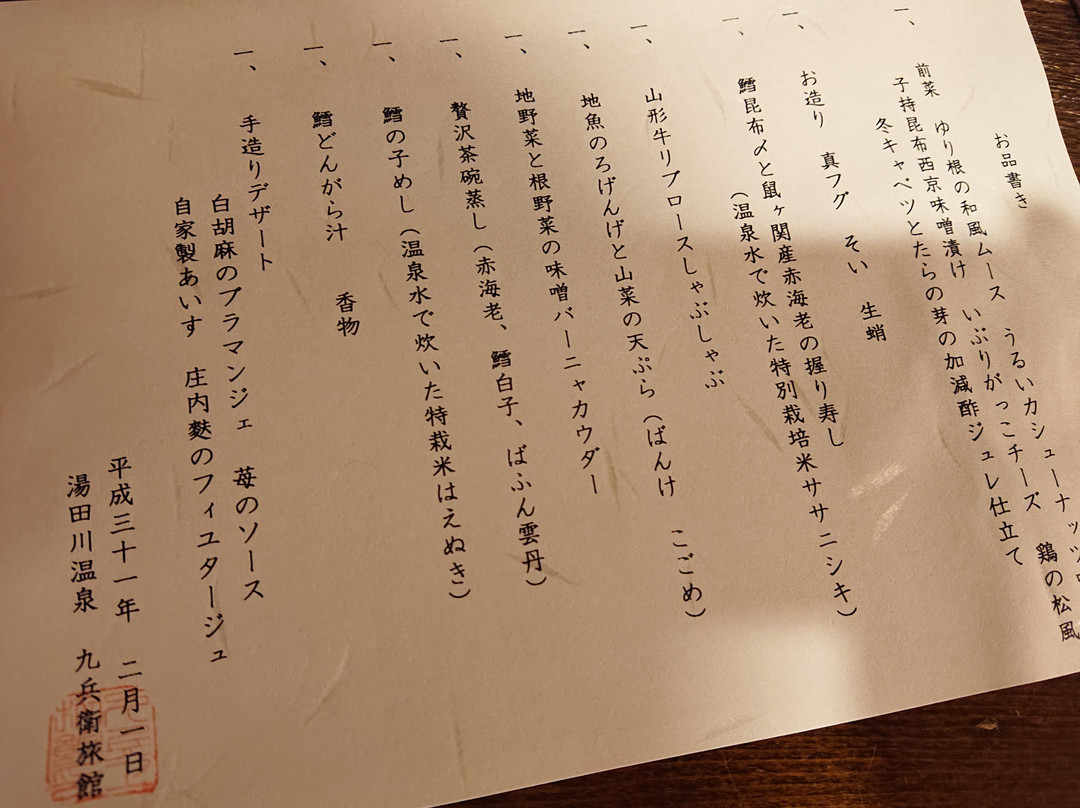 お品書き
一、前菜 ゆり根の和風ムース うるいカシューナッツ
子持昆布西京味噌漬け いぶりがっこチーズ 鶏の松風
冬キャベツとたらの芽の加減酢ジュレ仕立て
一、お造り 真フグ そい 生蛸
一、鱈昆布〆と鼠ヶ関産赤海老の握り寿し
(温泉水で炊いた特別栽培米ササニシキ)
一、山形牛リブロースしゃぶしゃぶ
一、地魚のろげんげと山菜の天ぷら(ばんけ こごめ)
一、地野菜と根野菜の味噌バーニャカウダー
一、贅沢茶碗蒸し(赤海老、鱈白子、ばふん雲丹)
一、鱈の子めし(温泉水で炊いた特栽米はえぬき)
一、鱈どんがら汁 香物
一、手造りデザート
白胡麻のブラマンジェ 苺のソース
自家製あいす 庄内麸のフィユタージュ
平成三十一年 二月一日
湯田川温泉 九兵衛旅館